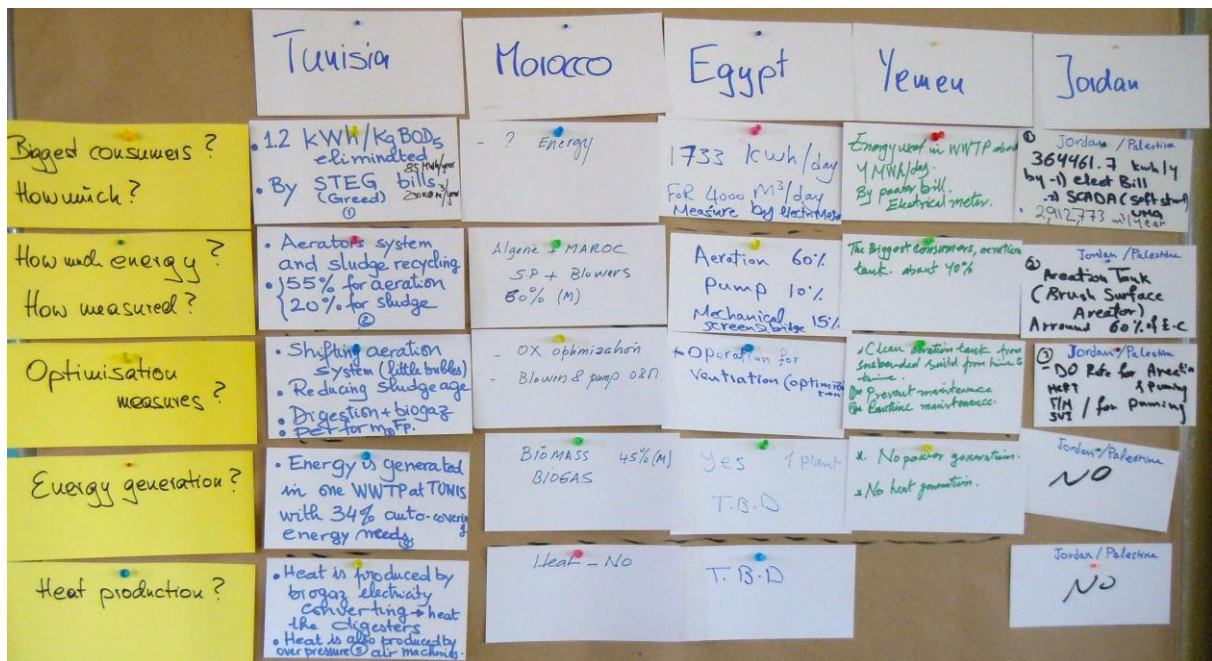 Tunisia
Morocco
Egypt
Yemen
Jordan
Biggest consumers?
How much?
• 1.2 kWh/Kg BOD5
eliminated
• By STEG bills
(Greed)
①
- ? Energy
1733 kwh/day
FOR 4000 M³/day
Measure by electr
Energy need in WWTP about
4 MWh/day.
By power bill.
Electrical meter.
① Jordan/Palestine
364461.7 kwh/y
by -1) elect Bill
-2) SCADA (soft start)
2,912,773 m³/year
How much energy?
How measured?
• Aerators system
and sludge recycling
• 55% for aeration
20% for sludge
②
Algerie + MAROC
SP + Blowers
60% (M)
Aeration 60%
Pump 10%
Mechanical 15%
screens bridge
The Biggest consumers, aeration
tank. about 40%
② Jordan/Palestine
Areation Tank
(Brush Surface
Areator)
Arround 60% of E.C
Optimisation
measures?
• Shifting aeration
system (little bubles)
• Reducing sludge age
• Digestion + biogaz
- OX optimization
- Blowers & pump O&M
+ Operation for
Clean aeration tank from
time.
Prevent maintenance
Routine maintenance.
③ Jordan/Palestine
- DO Rate for Areation
& Puming
F/M
SVI / for puming
Energy generation?
• Energy is generated
in one WWTP at TUNIS
with 34% auto-covering
energy needs
BIOMASS 45% (M)
BIOGAS
Yes 1 plant
T.B.D
* No power generation.
* No heat generation.
Jordan/Palestine
NO
Heat production?
• Heat is produced by
biogaz electricity
converting → heat
the digesters
• Heat is also produced by
over pressure ⑤ air machines.
Heat - No
T.B.D
Jordan/Palestine
NO